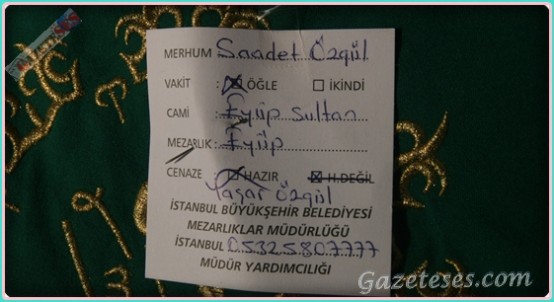 MERHUM : Saadet Özgül
VAKİT : ☒ ÖĞLE ☐ İKİNDİ
CAMİ : Eyüp Sultan
MEZARLIK : Eyüp
CENAZE : ☒ HAZIR ☒ H.DEĞİL
Yaşar Özgül
İSTANBUL BÜYÜKŞEHİR BELEDİYESİ
MEZARLIKLAR MÜDÜRLÜĞÜ
İSTANBUL 05325807777
MÜDÜR YARDIMCILIĞI
Gazeteses.com